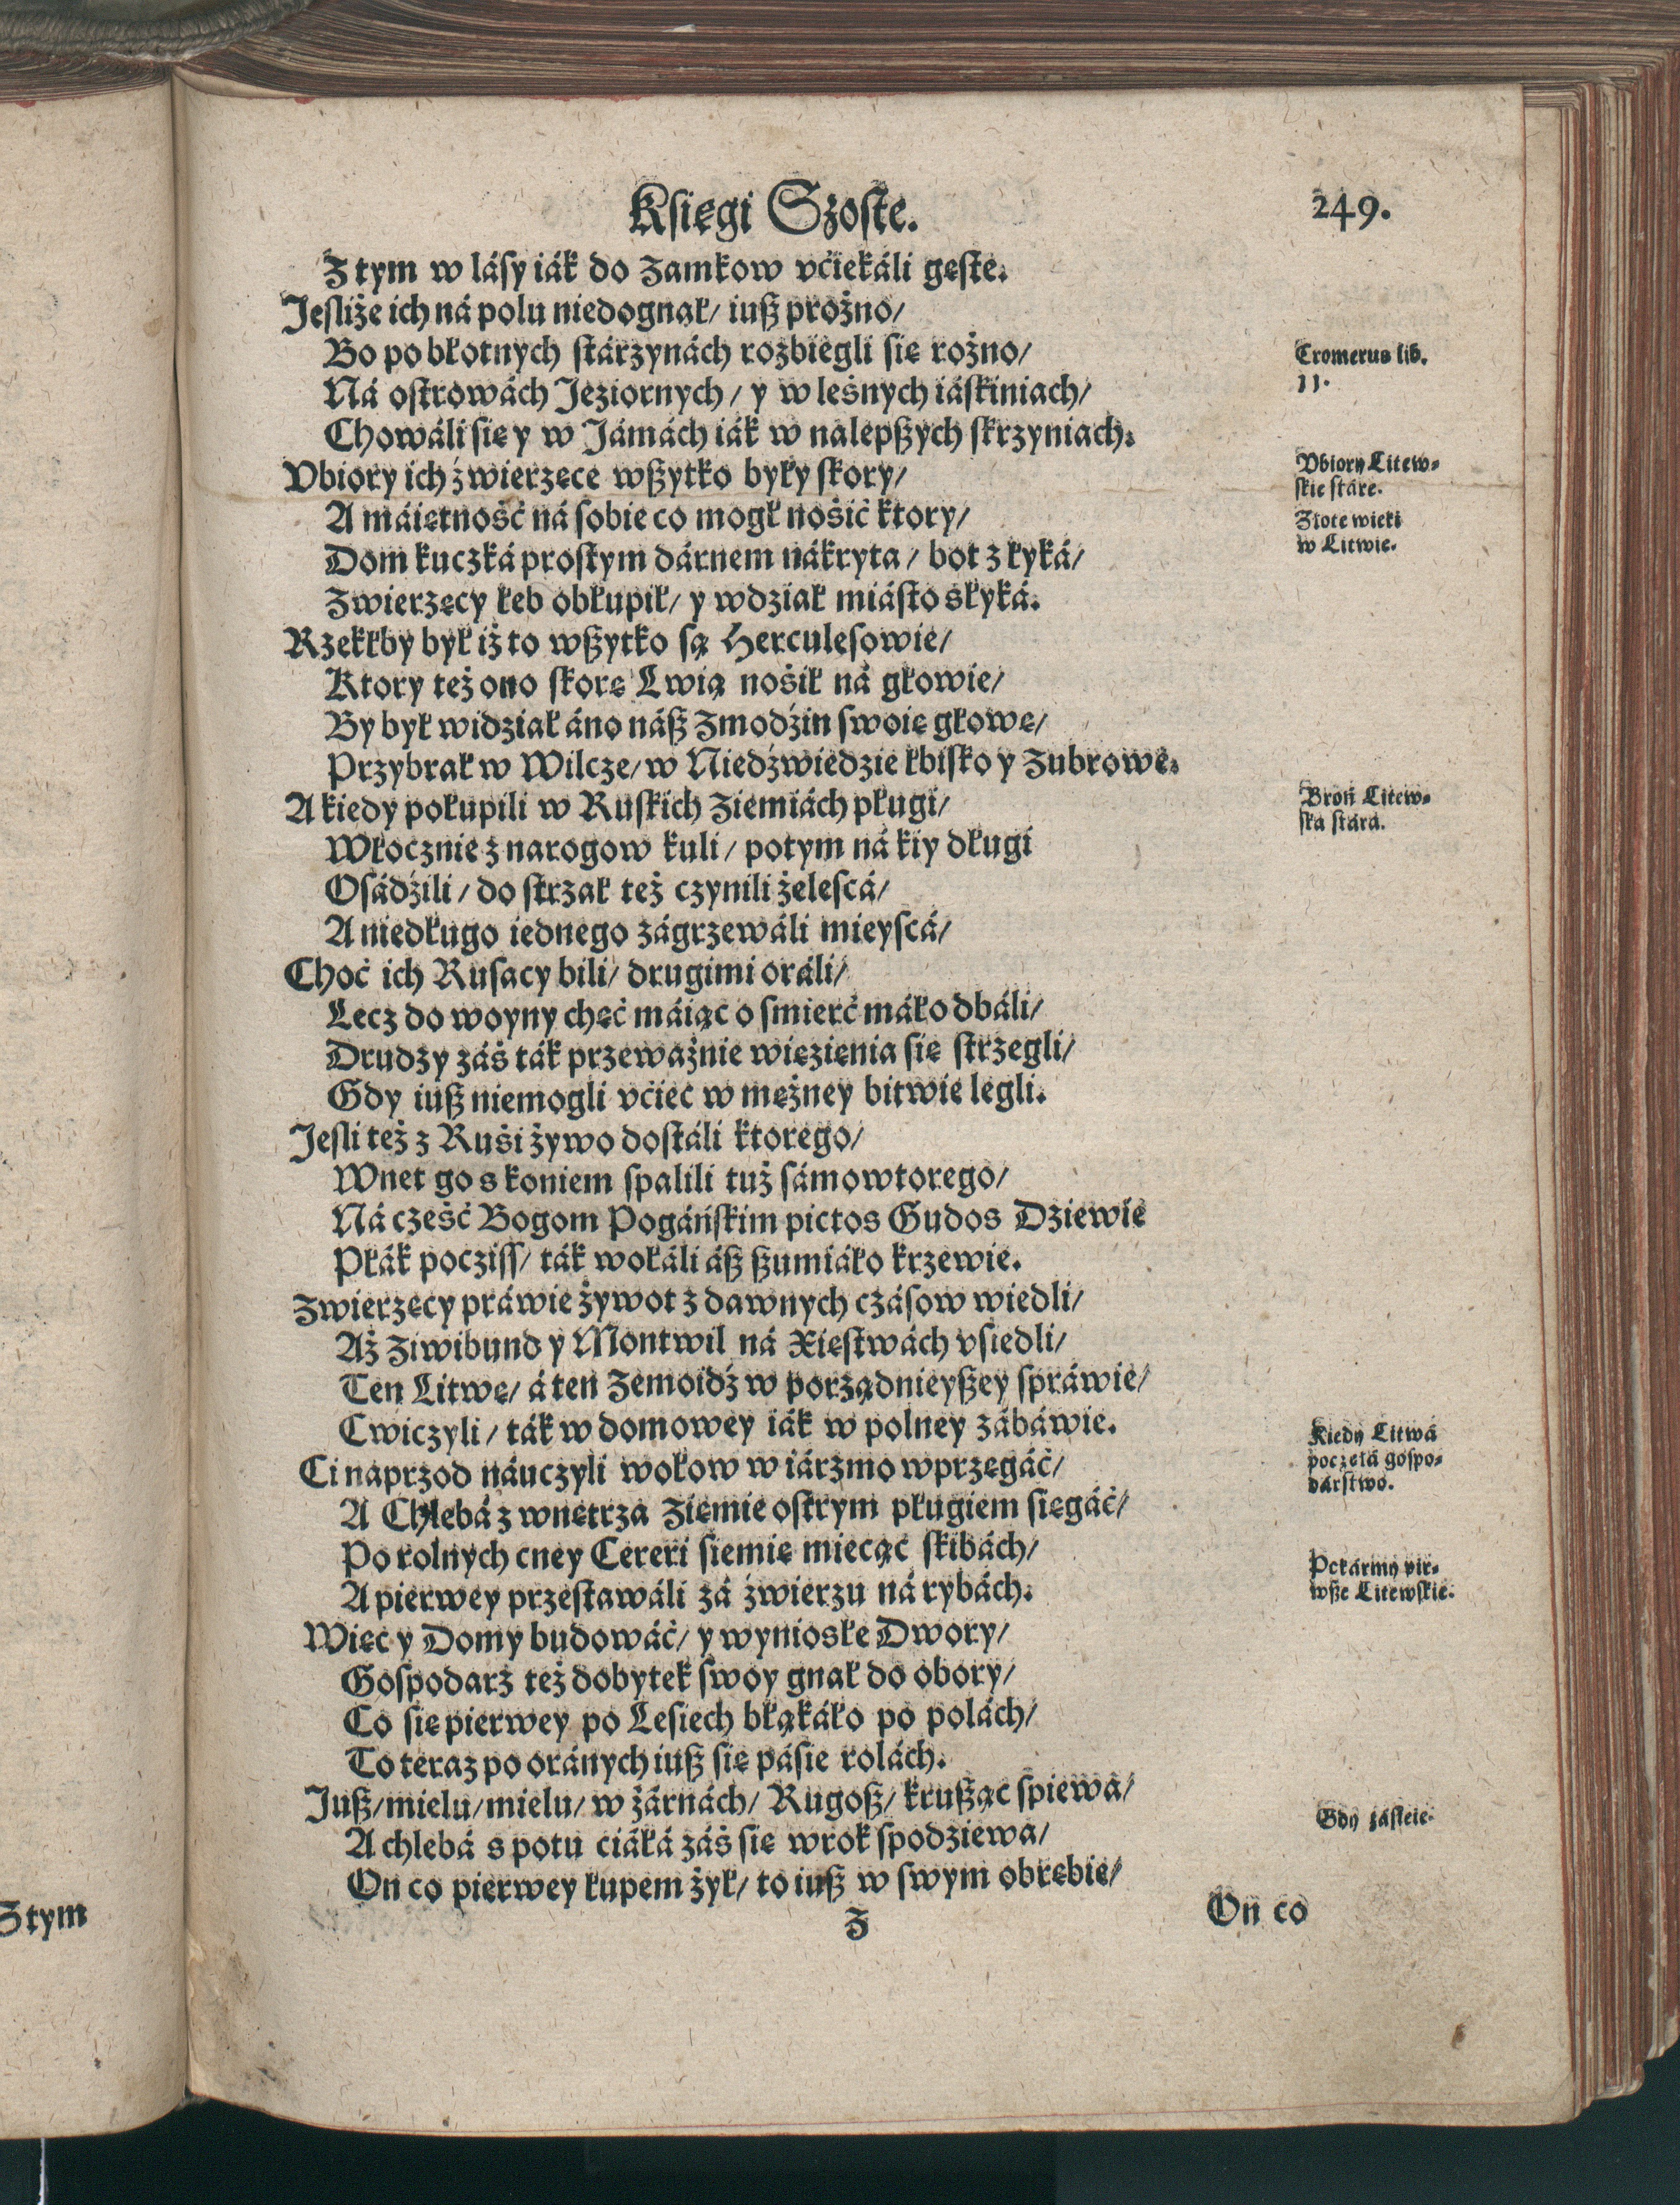 Księgi Szoste.
249.
Z tym w lásy iák do Zamkow vćiekáli gęste.
Jesliże ich ná polu niedognał/ iuß prożno/
Bo po błotnych stárzynách rozbiegli się rożno/
Ná ostrowách Jeziornych/ y w leśnych iáskiniach/
Chowáli się y w Jámách iák w nalepßych skrzyniach.
Vbiory ich źwierzęce wßytko były skory/
A máiętność ná sobie co mogł nośić ktory/
Dom kuczká prostym dárnem nákryta/ bot z łyká/
Zwierzęcy łeb obłupił/ y wdział miásto słyká.
Rzekłby był iż to wßytko są Herculesowie/
Ktory też ono skorę Lwią nośił ná głowie/
By był widział áno náß Zmodźin swoię głowę/
Przybrał w Wilcze/ w Niedźwiedzie łbisko y Zubrowe.
A kiedy połupili w Ruskich Ziemiách pługi/
Włocznie z narogow kuli/ potym ná kiy długi
Osádźili/ do strzał też czynili żelescá/
A niedługo iednego zágrzewáli mieyscá/
Choć ich Rusacy bili/ drugimi oráli/
Lecz do woyny chęć máiąc o smierć máło dbáli/
Drudzy záś ták przeważnie więzienia się strzegli/
Gdy iuß niemogli vćiec w mężney bitwie legli.
Jesli też z Ruśi żywo dostáli ktorego/
Wnet go s koniem spalili tuż sámowtorego/
Ná cześć Bogom Pogáńskim pictos Gudos Dziewie
Płák pocziss/ ták wołáli áß ßumiáło krzewie.
Zwierzęcy práwie żywot z dawnych czásow wiedli/
Aż Ziwibund y Montwil ná Xięstwách vsiedli/
Ten Litwę/ á ten Zemoidź w porządnieyßey spráwie/
Cwiczyli/ ták w domowey iák w polney zábáwie.
Ci naprzod náuczyli wołow w iárzmo wprzęgáć/
A Chlebá z wnętrza Ziemie ostrym pługiem sięgáć/
Po rolnych cney Cereri siemię miecąc skibách/
A pierwey przestawáli zá źwierzu ná rybách.
Więc y Domy budowáć/ y wyniosłe Dwory/
Gospodarz też dobytek swoy gnał do obory/
Co się pierwey po Lesiech błąkáło po polách/
To teraz po oránych iuß się pásie rolách.
Juß/ mielu/ mielu/ w żárnách/ Rugoß/ krußąc spiewa/
A chlebá s potu ciáłá záś się wrok spodziewa/
On co pierwey łupem żył/ to iuß w swym obrębie/
Z
On co
Cromerus lib.
11.
Vbiory Litew-
skie stáre.
Złote wieki
w Litwie.
Broń Litew-
ska stára.
Kiedy Litwá
poczęłá gospo-
dárstwo.
Pokármy pir-
wße Litewskie.
Gdy zásieie.
Z tym